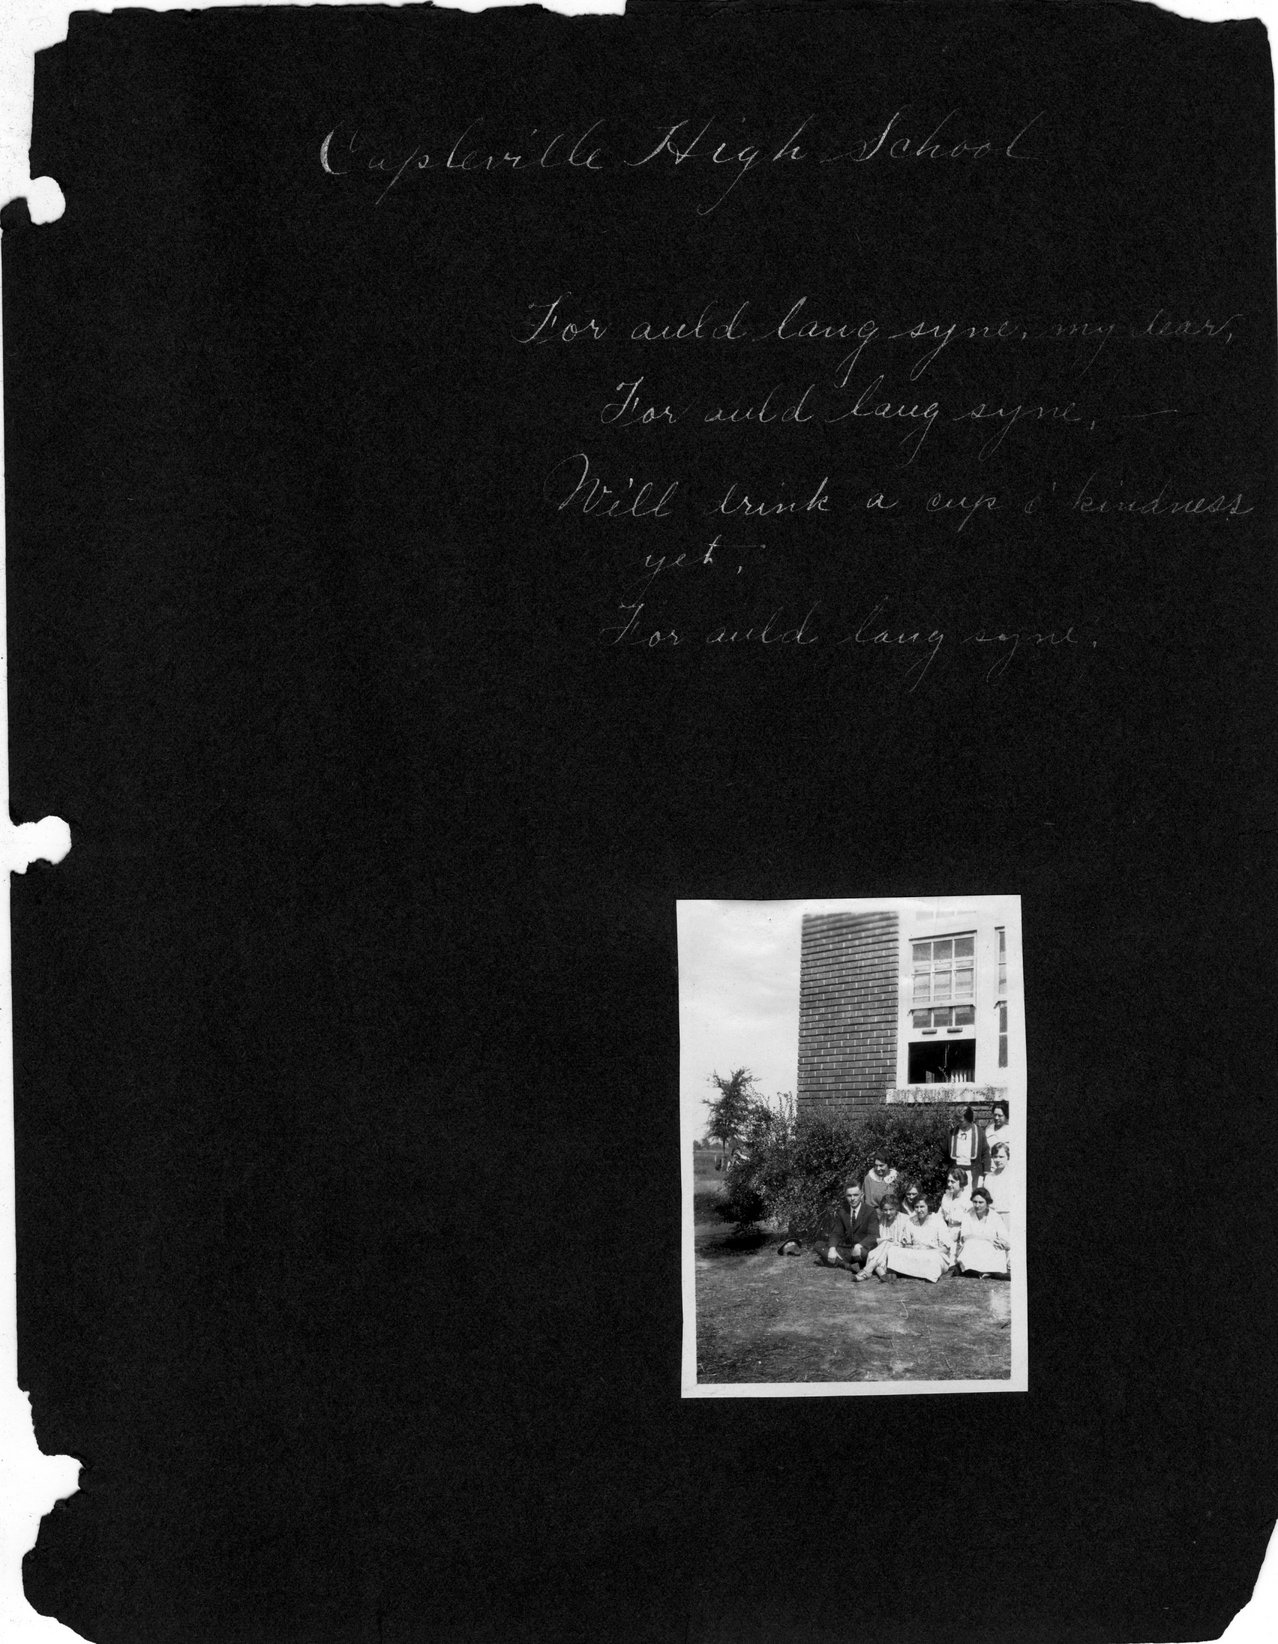 Capleville High School
For auld lang syne, my dear,
For auld lang syne, —
We'll drink a cup o' kindness
yet,
For auld lang syne.